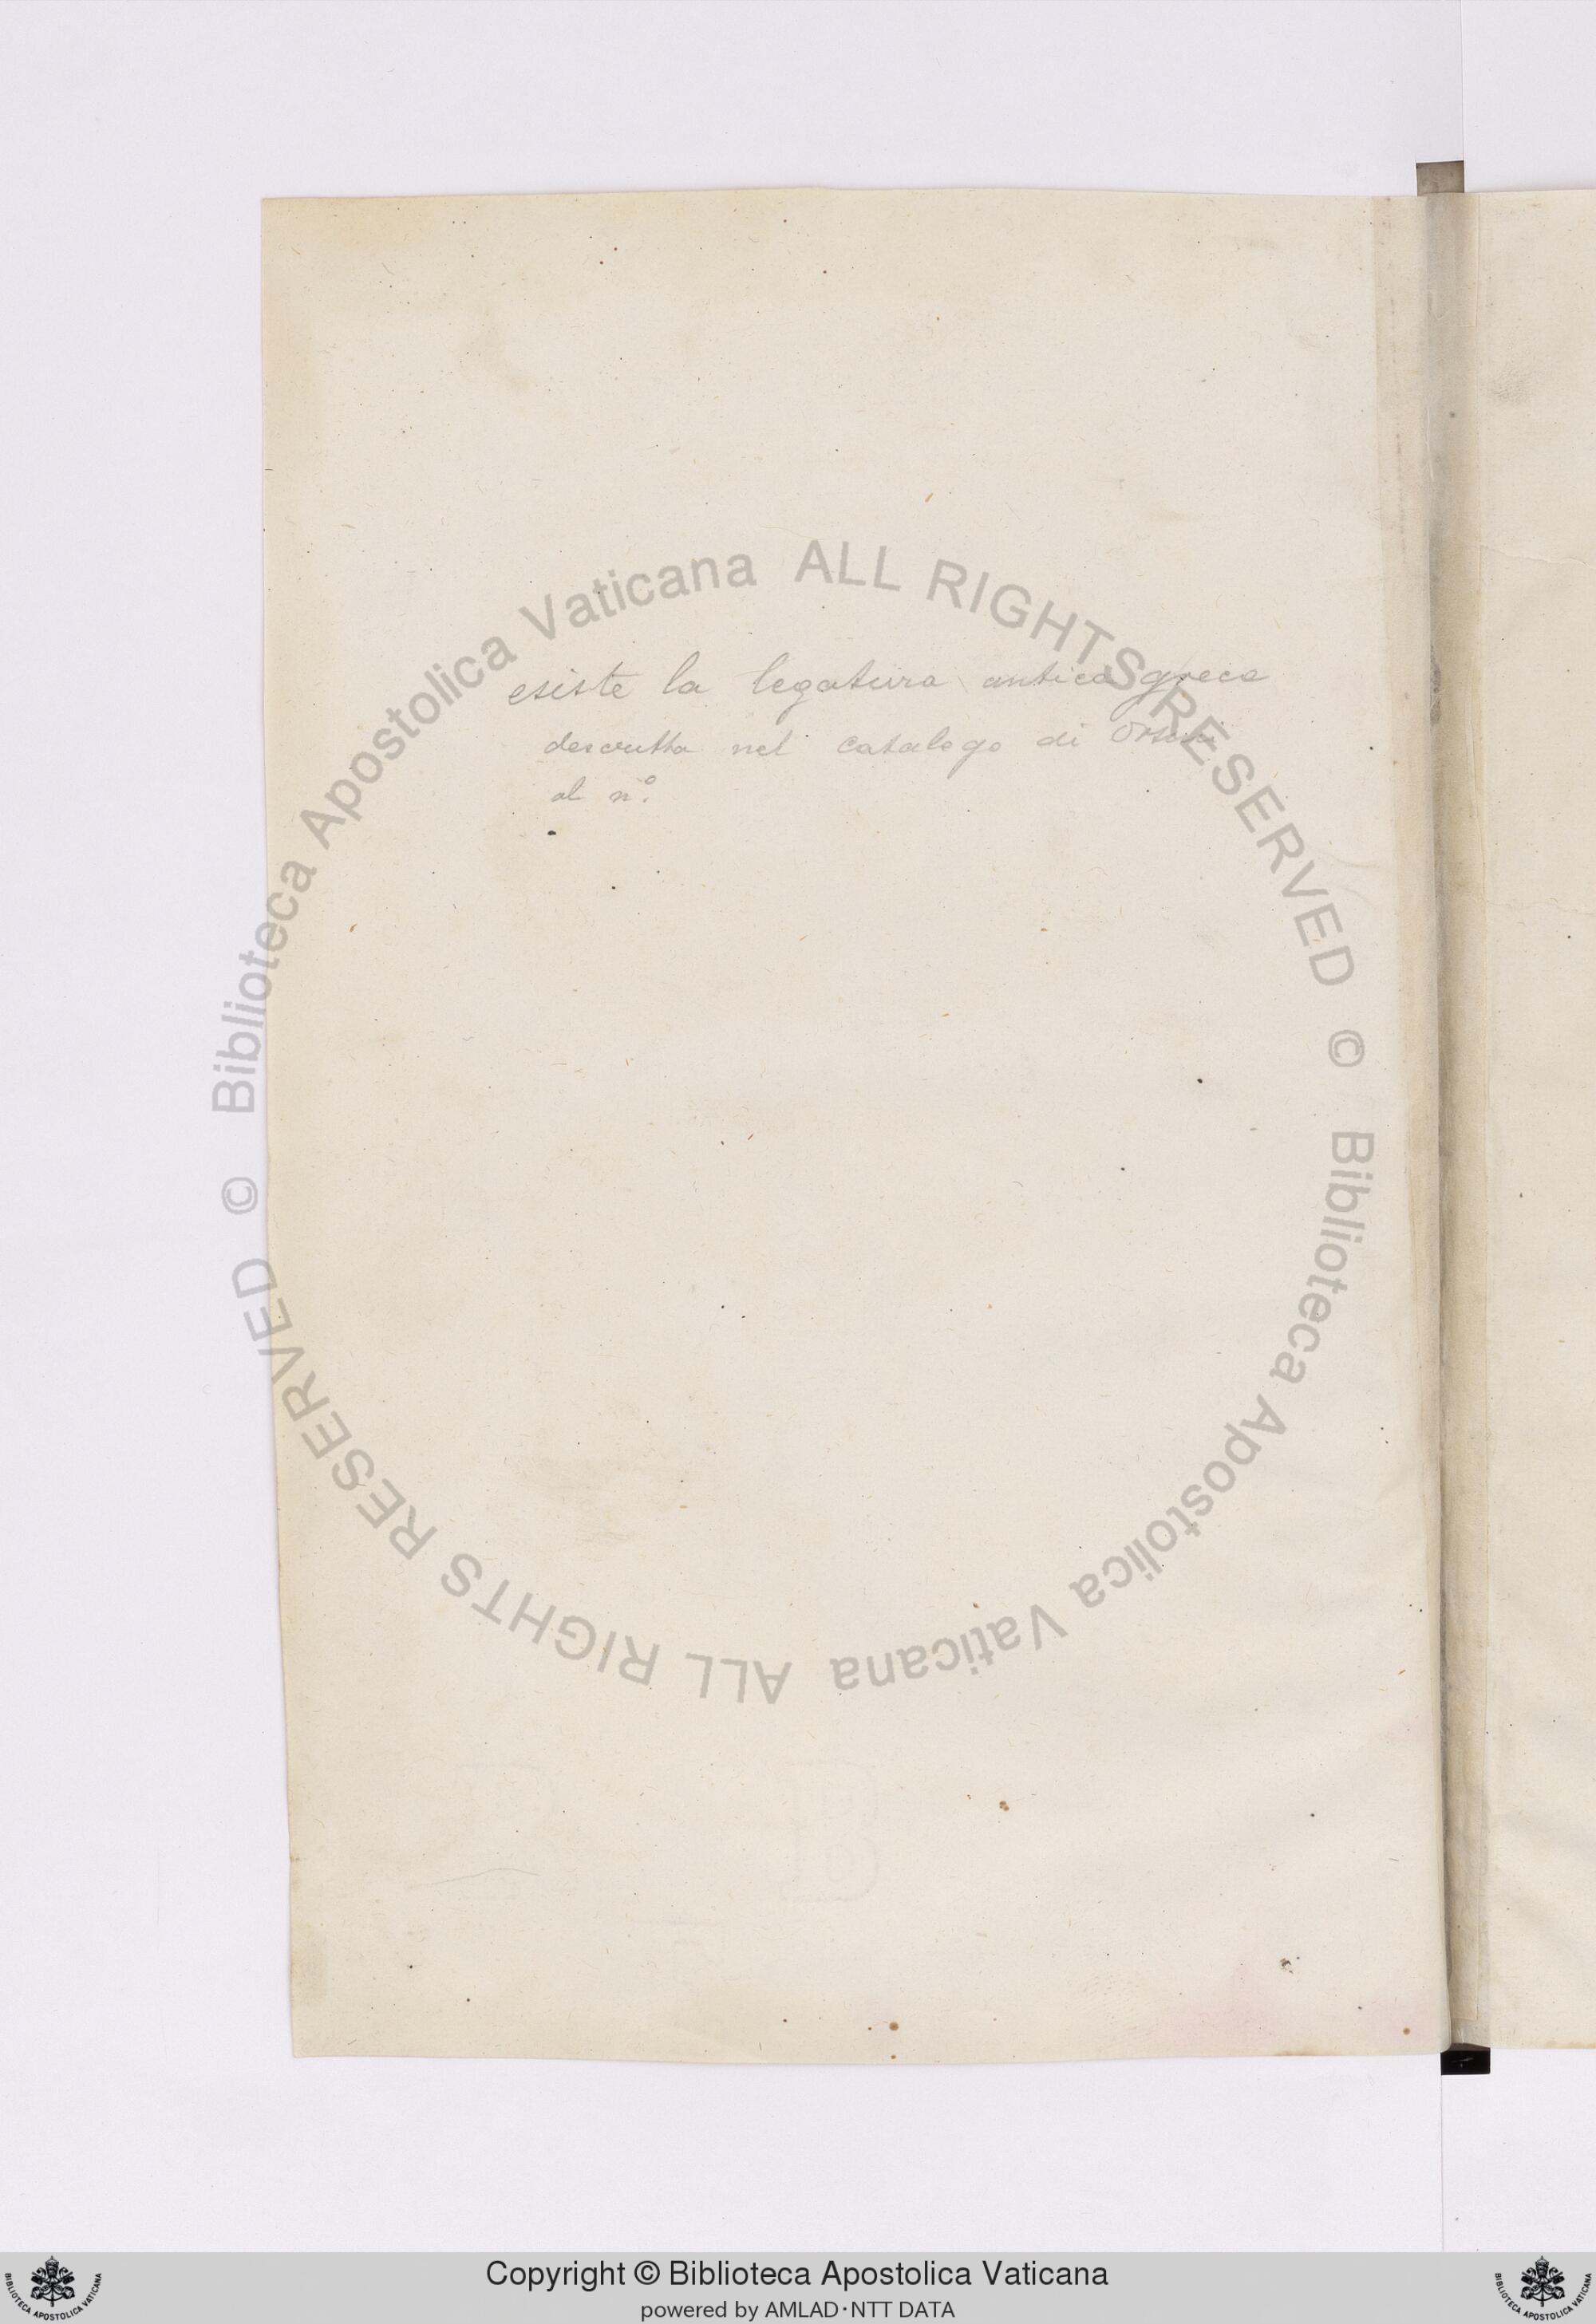 esiste la legatura antica greca
descritta nel catalogo di Orsini
al n.º
© Biblioteca Apostolica Vaticana ALL RIGHTS RESERVED
© Biblioteca Apostolica Vaticana ALL RIGHTS RESERVED
Copyright © Biblioteca Apostolica Vaticana
powered by AMLAD·NTT DATA
BIBLIOTECA APOSTOLICA VATICANA
BIBLIOTECA APOSTOLICA VATICANA